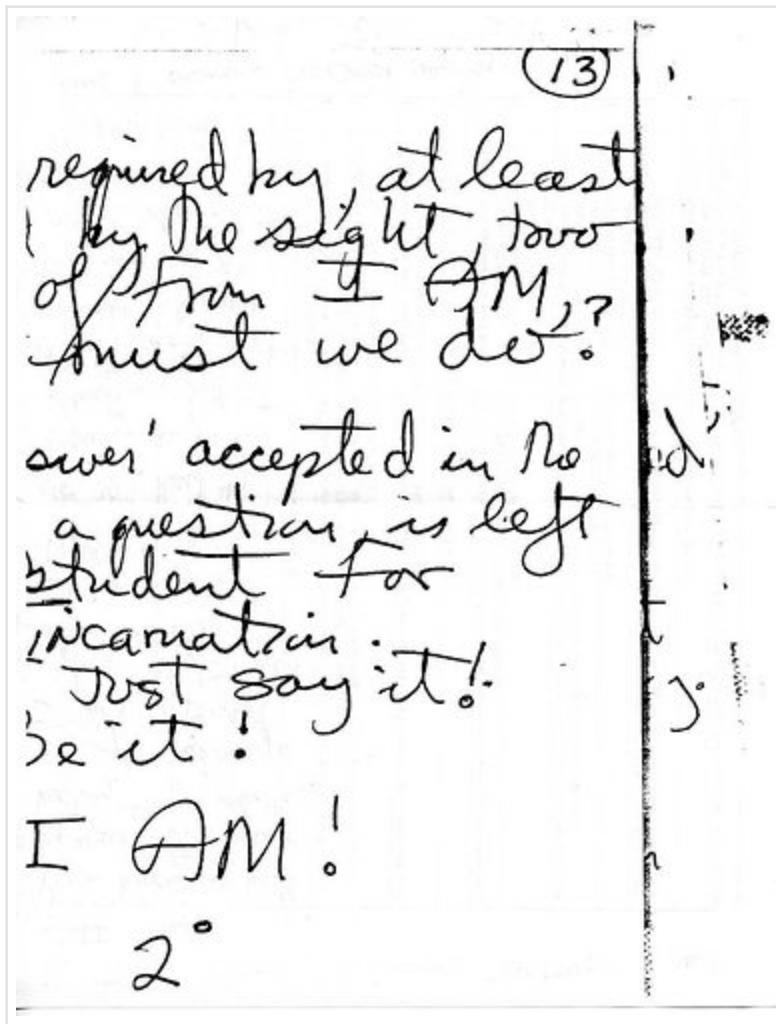 13
required by, at least
by the sight, two
of from I AM,
must we do?
swer' accepted in the
a question, is left
student for
incarnation.
Just say it!
Be it!
I AM!
2°